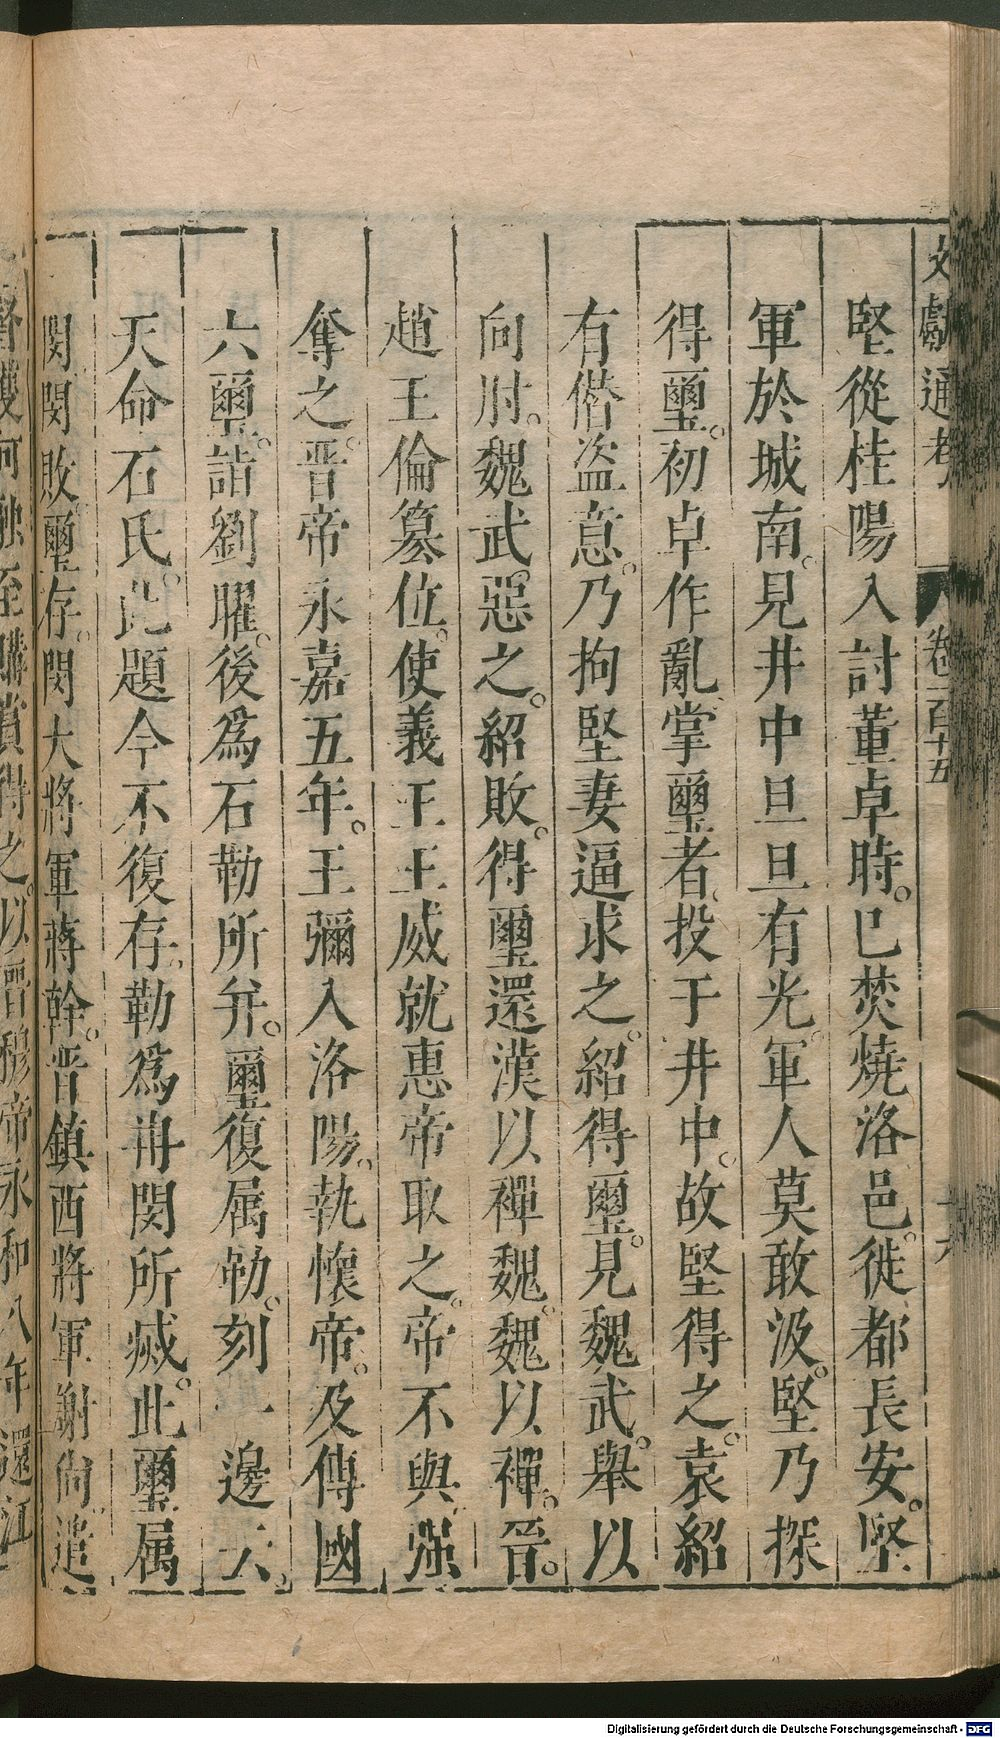 文獻通考 卷一百十五
堅從桂陽入討董卓時。巳焚燒洛邑。徙都長安。堅
軍於城南。見井中旦旦有光。軍人莫敢汲。堅乃探
得璽。初卓作亂。掌璽者投于井中。故堅得之。袁紹
有僣盜意。乃拘堅妻逼求之。紹得璽。見魏武。舉以
向肘。魏武惡之。紹敗。得璽還漢以禪魏。魏以禪晉。
趙王倫篡位。使義王王威就惠帝取之。帝不與強
奪之。晉帝永嘉五年。王彌入洛陽。執懷帝。及傳國
六璽。詣劉曜。後爲石勒所弁。璽復属勒。刻一邊云。
天命石氏。此題今不復存。勒爲冉閔所滅。此璽属
閔閔敗。璽存。閔大將軍蔣幹。晉鎮西將軍謝尙遣
購賞得之。以晉穆帝永和八年還江
Digitalisierung gefördert durch die Deutsche Forschungsgemeinschaft - DFG